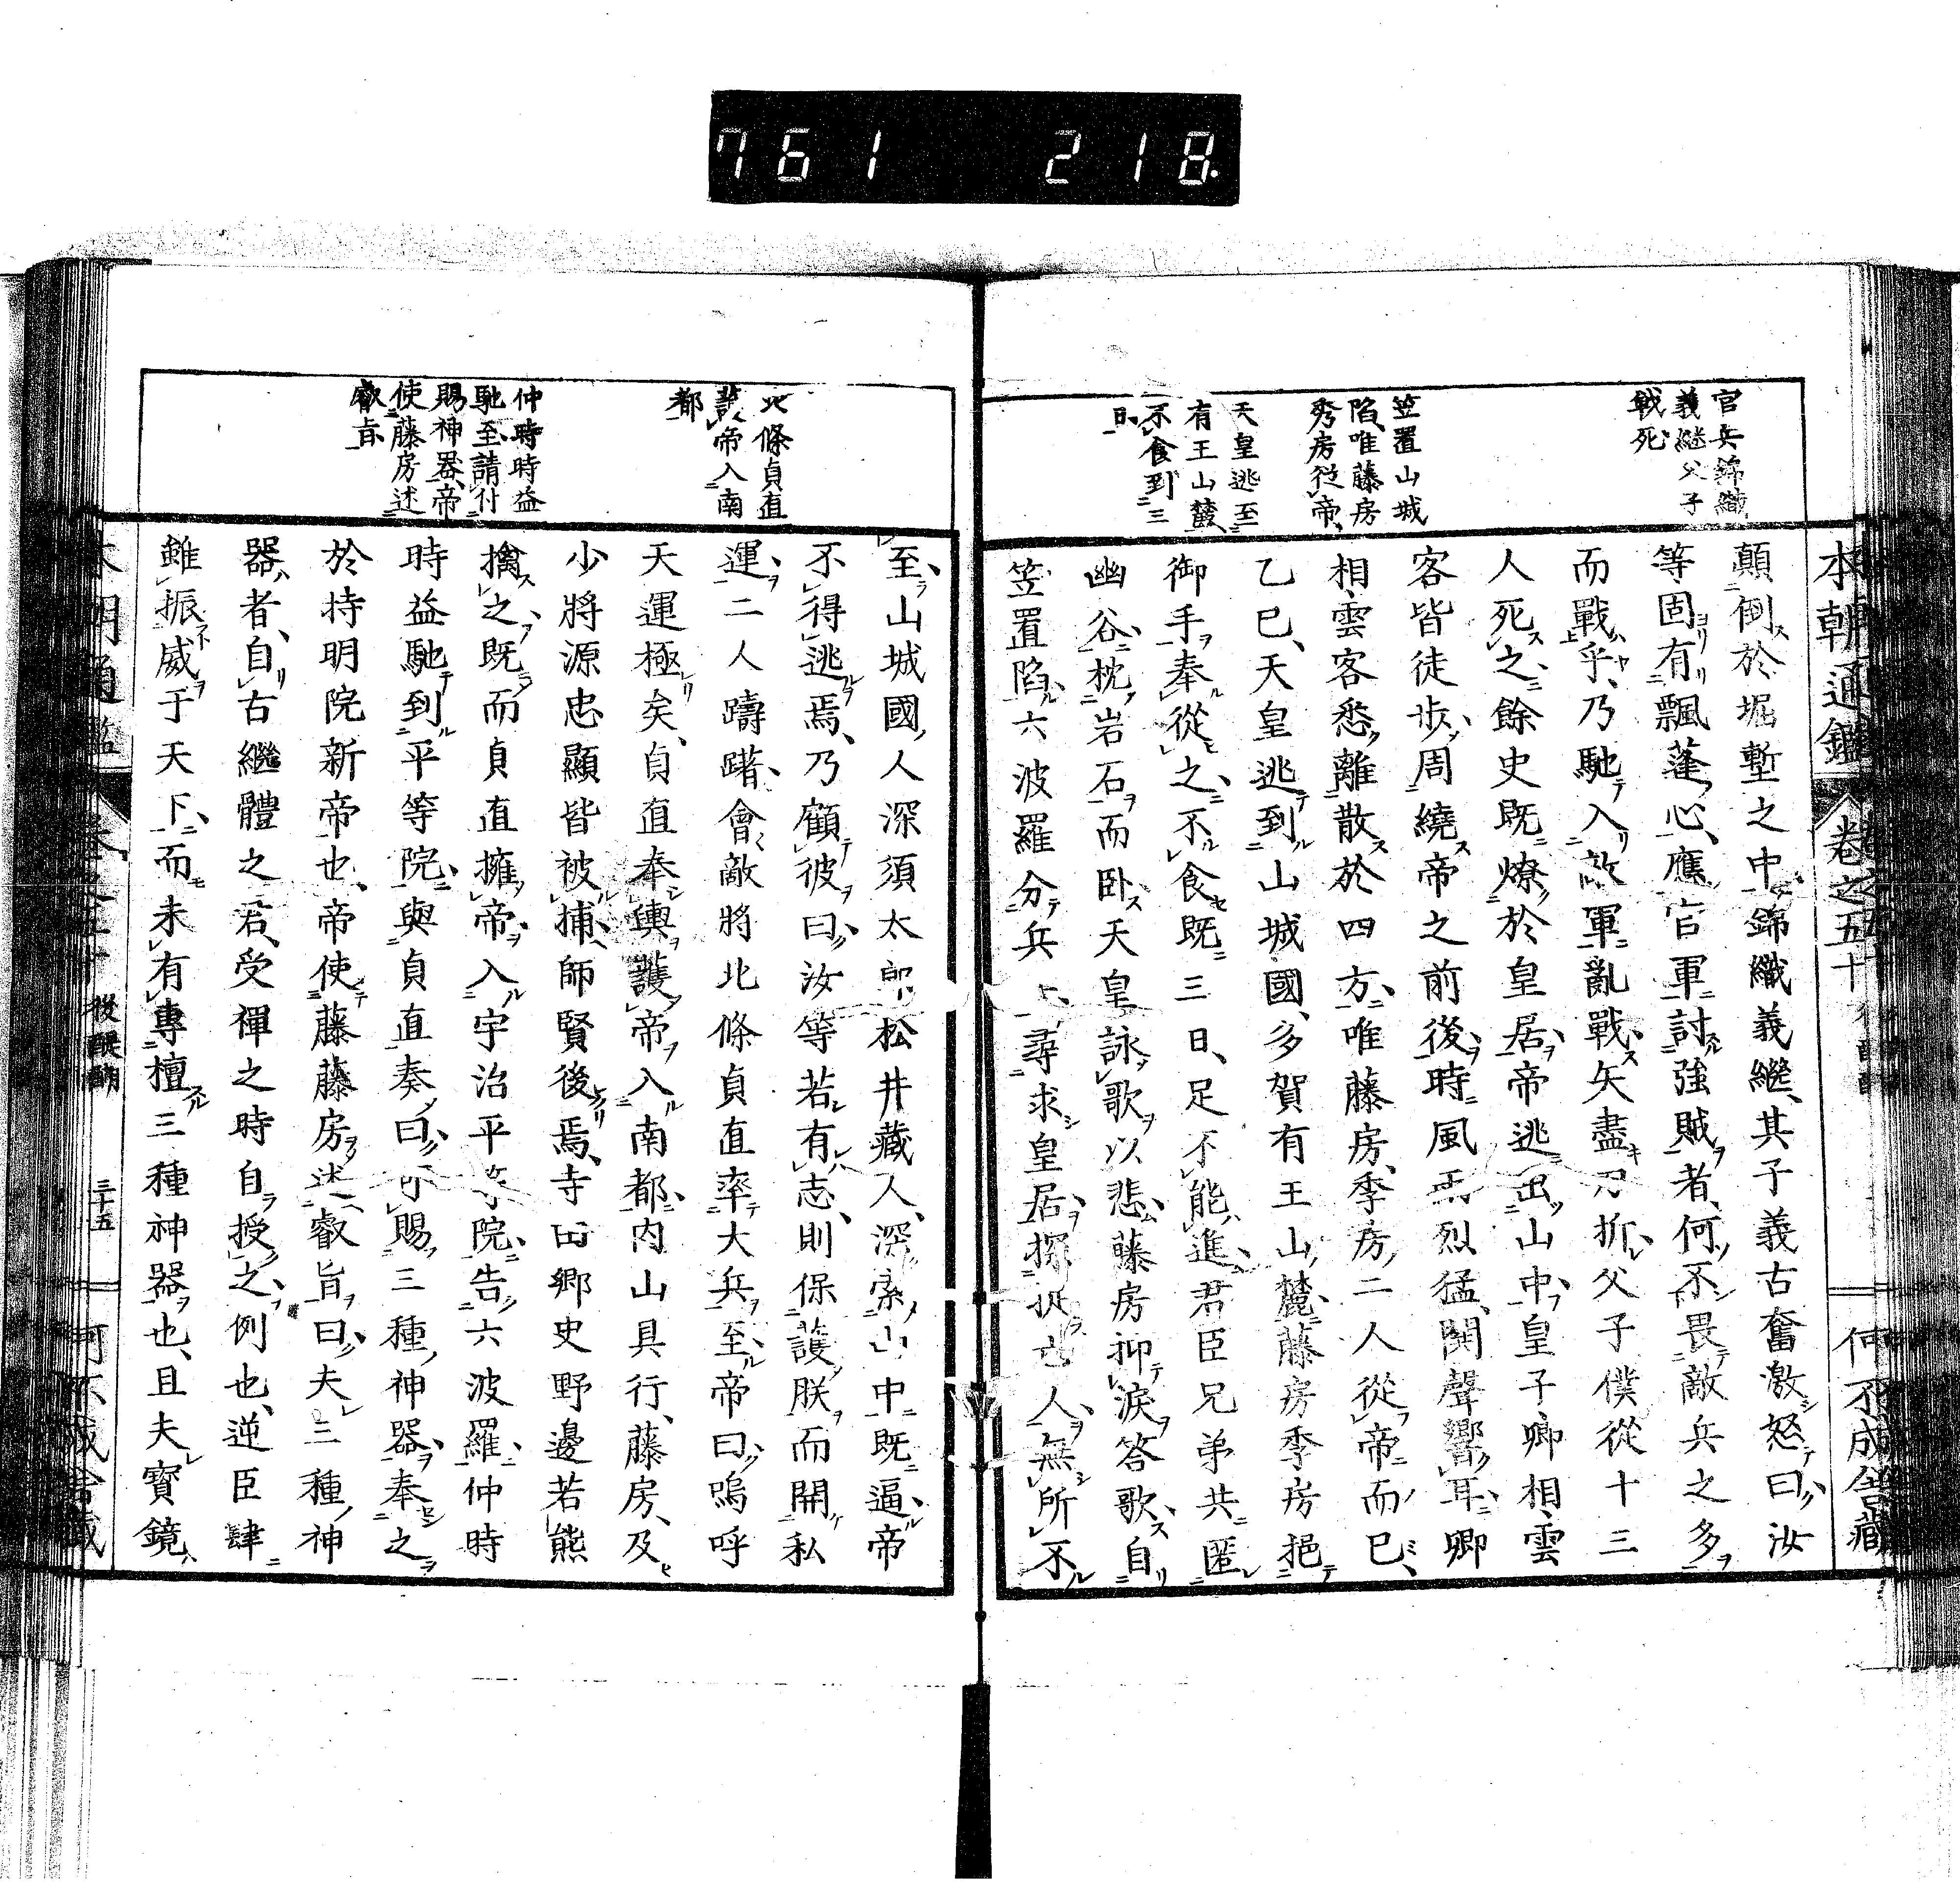 761 218.
本朝通鑑 卷之五十
何不成舍藏
官兵錦織
義繼父子
戰死
笠置山城
陷唯藤房
秀房從帝
天皇逃至
有王山麓
不食到三
日
顛倒於堀塹之中錦織義繼其子義古奮激怒曰汝
等固有飄蓬心應官軍討強賊者何不畏敵兵之多
而戰乎乃馳入敵軍亂戰矢盡刀折父子僕從十三
人死之餘史既燎於皇居帝逃出山中皇子卿相雲
客皆徒步周繞帝之前後時風雨烈猛鬨聲響耳卿
相雲客愁離散於四方唯藤房季房二人從帝而已
乙巳天皇逃到山城國多賀有王山麓藤房季房挹
御手奉從之不食既三日足不能進君臣兄弟共匿
幽谷枕岩石而卧天皇詠歌以悲藤房抑淚答歌自
笠置陷六波羅分兵 尋求皇居探 人無所不
北條貞直
護帝入南
都
仲時時益
馳至請付
賜神器帝
使藤房述
叡旨
至山城國人深須太郎松井藏人深索山中既逼帝
不得逃焉乃顧彼曰汝等若有志則保護朕而開私
運二人躊躇會敵將北條貞直率大兵至帝曰嗚呼
天運極矣貞直奉輿護帝入南都內山具行藤房及
少將源忠顯皆被捕師賢後焉寺田卿史野邊若熊
擒之既而貞直擁帝入宇治平等院告六波羅仲時
時益馳到平等院與貞直奏曰可賜三種神器奉之
於持明院新帝也帝使藤藤房述叡旨曰夫三種神
器者自古繼體之君受禪之時自授之例也逆臣肆
雖振威于天下而未有專擅三種神器也且夫寶鏡
後醍醐 三十五